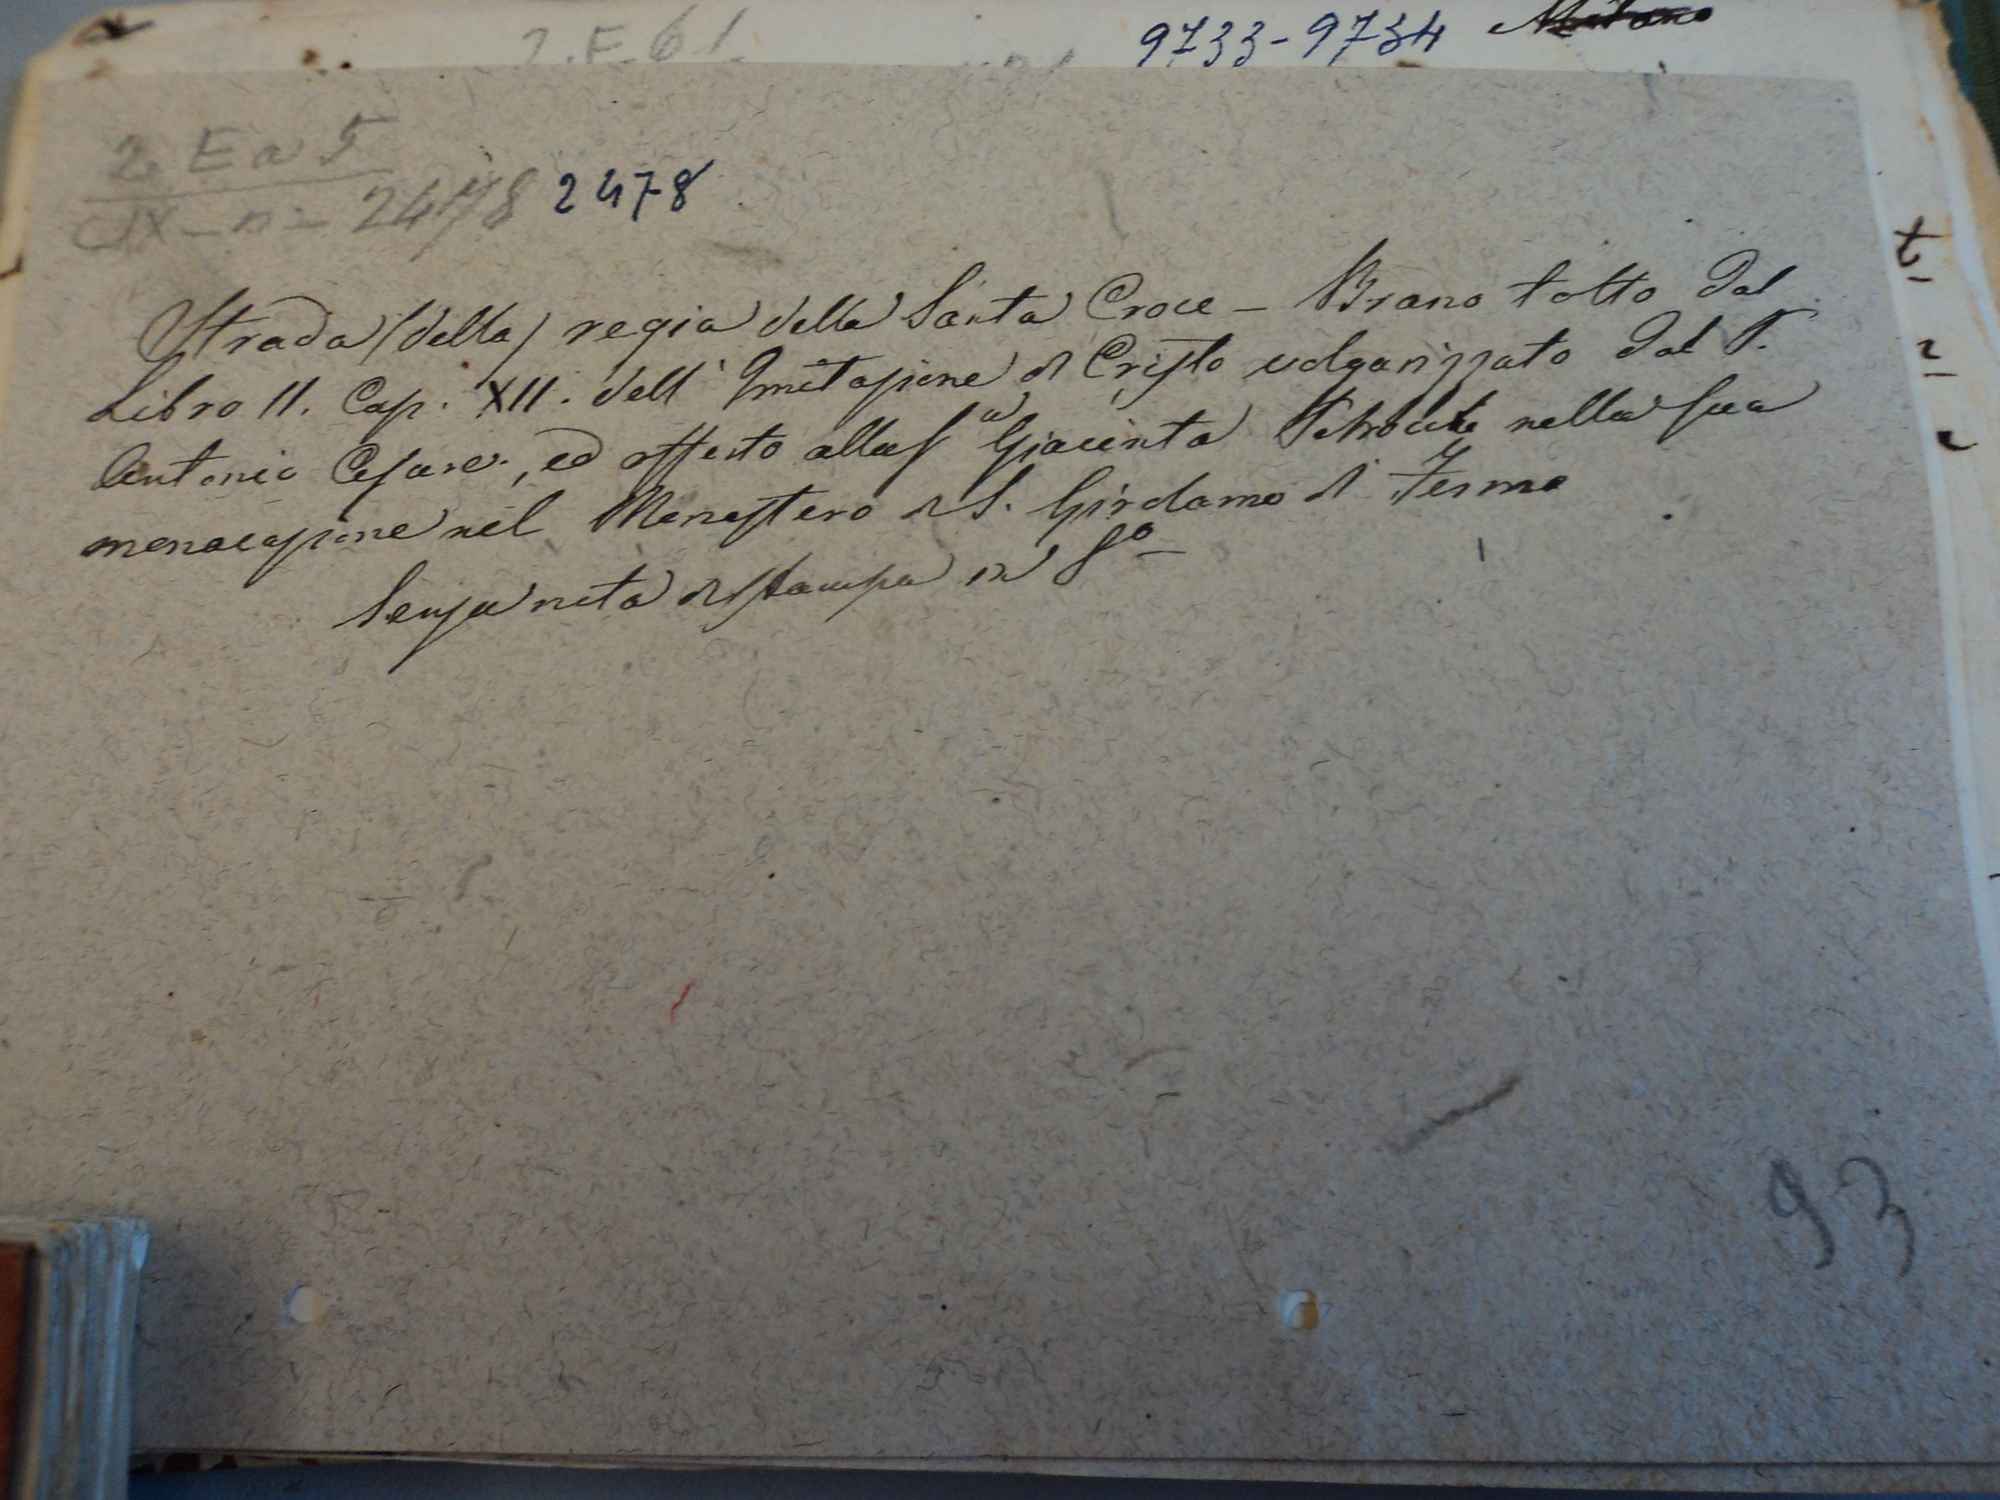 2.E.61.
9733-9734 Milano
2 E a 5
IX - n = 2478 2478
Strada (della) regia della Santa Croce - Brano tolto dal
Libro II. Cap. XII. dell' Imitazione di Cristo volgarizzato dal P.
Antonio Cesare, ed offerto alla Sa Giacinta nella sua
monacazione nel Monastero di S. Girolamo di Fermo
Senza nota di stampa in 8o
93